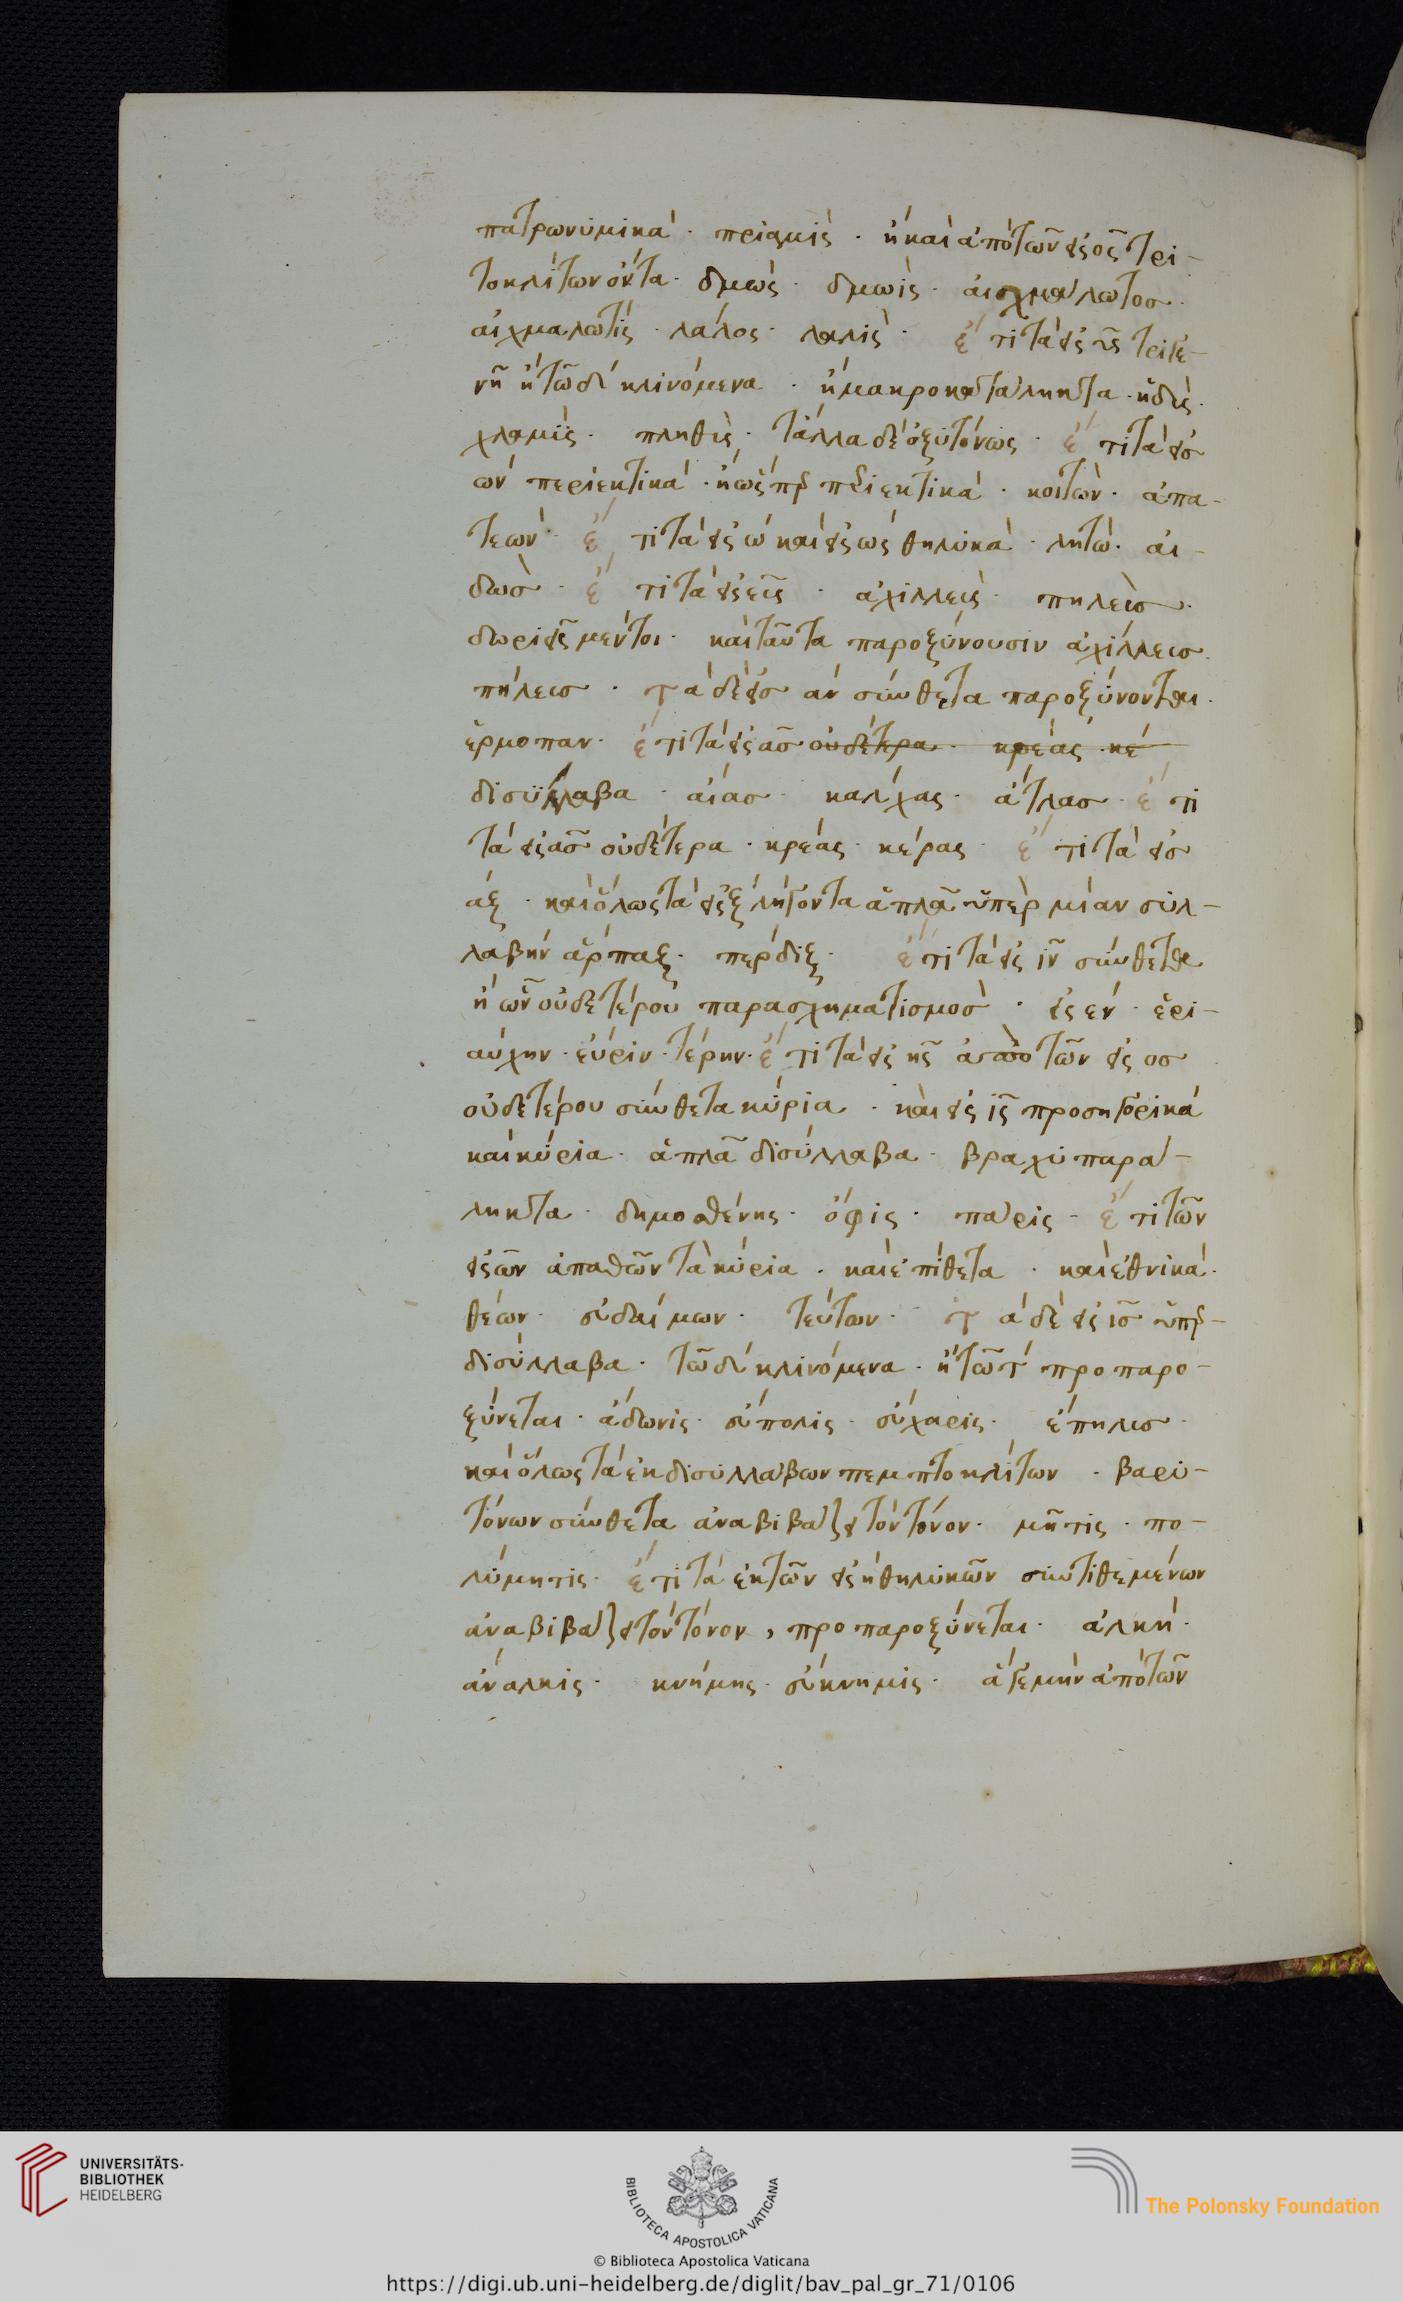 πατρωνυμικά· πριαμίς· ἢ καὶ ἀπὸ τῶν εἰς ος τρι-
τοκλίτων ὄντα· δμώς· δμωίς· αἰσχμάλωτοσ·
αἰχμαλωτίς· λάλος· λαλίς· ἔτι τὰ εἰς υς τριγε-
νῆ ἢ τῶ δ κλινόμενα· ἢ μακροκατάληκτα· ἡδύς·
χλαμύς· πληθύς· τἄλλα δὲ ὀξυτόνως· ἔτι τὰ εἰσ
ων περιεκτικά· ἢ ὡς περιεκτικά· κοιτών· ἀπα-
τεών· ἔτι τὰ εἰς ω καὶ εἰς ως θηλυκά· λητώ· αἰ-
δώσ· ἔτι τὰ εἰς εις· ἀχιλλείς· πηλείσ·
δωριεῖς μέντοι· καὶ ταῦτα παροξύνουσιν ἀχίλλεισ·
πήλεισ· τὰ δὲ εἰσ αν σύνθετα παροξύνονται·
ἑρμοπαν· ἔτι τὰ εἰς ασ οὐδέτερα· κρέας· κέ
δισύλλαβα· αἴασ· κάλχας· ἄτλασ· ἔτι
τὰ εἰς ασ οὐδέτερα· κρέας· κέρας· ἔτι τὰ εἰσ
αξ· καὶ ὅλως τὰ εἰς ξ λήγοντα ἁπλᾶ ὑπὲρ μίαν συλ-
λαβήν ἅρπαξ· πέρδιξ· ἔτι τὰ εἰς ιν σύνθετα
ἢ ὧν οὐδετέρου παρασχηματισμοσ· εἰς εν· ἐρι-
αύχην· εὔριν· τέρην· ἔτι τὰ εἰς ης ἀπὸ τῶν εἰς οσ
οὐδετέρου σύνθετα κύρια· καὶ εἰς ις προσηγορικά
καὶ κύρια· ἁπλᾶ δισύλλαβα· βραχυπαρά-
ληκτα· δημοσθένης· ὄφις· πάρις· ἔτι τῶν
εἰς ων ἀπαθῶν τὰ κύρια· καὶ ἐπίθετα· καὶ ἐθνικά·
θέων· εὐδαίμων· τεύτων· τὰ δὲ εἰς ισ ὑπὲρ-
δισύλλαβα· τῶ δ κλινόμενα· ἢ τῶ τ προπαρο-
ξύνεται· ἄδωνις· εὔπολις· εὔχαρις· ἔπηλισ·
καὶ ὅλως τὰ ἐκ δισυλλάβων πεμπτοκλίτων· βαρυ-
τόνων σύνθετα ἀναβιβάζει τὸν τόνον· μῆτις· πο-
λύμητις· ἔτι τὰ ἐκ τῶν εἰς η θηλυκῶν συντιθεμένων
ἀναβιβάζει τὸν τόνον, προπαροξύνεται· ἀλκή·
ἄναλκις· κνήμης· εὔκνημις· ἅ γε μὴν ἀπὸ τῶν
UNIVERSITÄTS-
BIBLIOTHEK
HEIDELBERG
BIBLIOTECA APOSTOLICA VATICANA
© Biblioteca Apostolica Vaticana
The Polonsky Foundation
https://digi.ub.uni-heidelberg.de/diglit/bav_pal_gr_71/0106